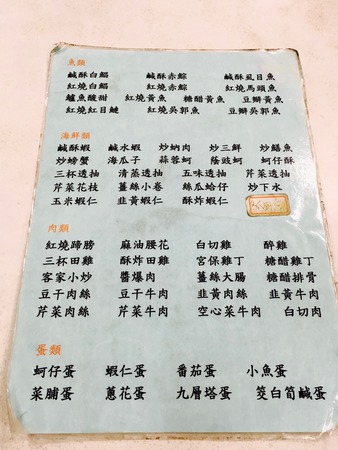 魚類
鹹酥白鯧 鹹酥赤鯮 鹹酥虱目魚
紅燒白鯧 紅燒赤鯮 紅燒馬頭魚
鱸魚酸甜 紅燒黃魚 糖醋黃魚 豆瓣黃魚
紅燒紅目鰱 紅燒吳郭魚 豆瓣吳郭魚
海鮮類
鹹酥蝦 鹹水蝦 炒蚋肉 炒三鮮 炒鱔魚
炒螃蟹 海瓜子 蒜蓉蚵 蔭豉蚵 蚵仔酥
三杯透抽 清蒸透抽 五味透抽 芹菜透抽
芹菜花枝 薑絲小卷 絲瓜蛤仔 炒下水
玉米蝦仁 韭黃蝦仁 酥炸蝦仁
肉類
紅燒蹄膀 麻油腰花 白切雞 醉雞
三杯田雞 酥炸田雞 宮保雞丁 糖醋雞丁
客家小炒 醬爆肉 薑絲大腸 糖醋排骨
豆干肉絲 豆干牛肉 韭黃肉絲 韭黃牛肉
芹菜肉絲 芹菜牛肉 空心菜牛肉 白切肉
蛋類
蚵仔蛋 蝦仁蛋 番茄蛋 小魚蛋
菜脯蛋 蔥花蛋 九層塔蛋 筊白筍鹹蛋